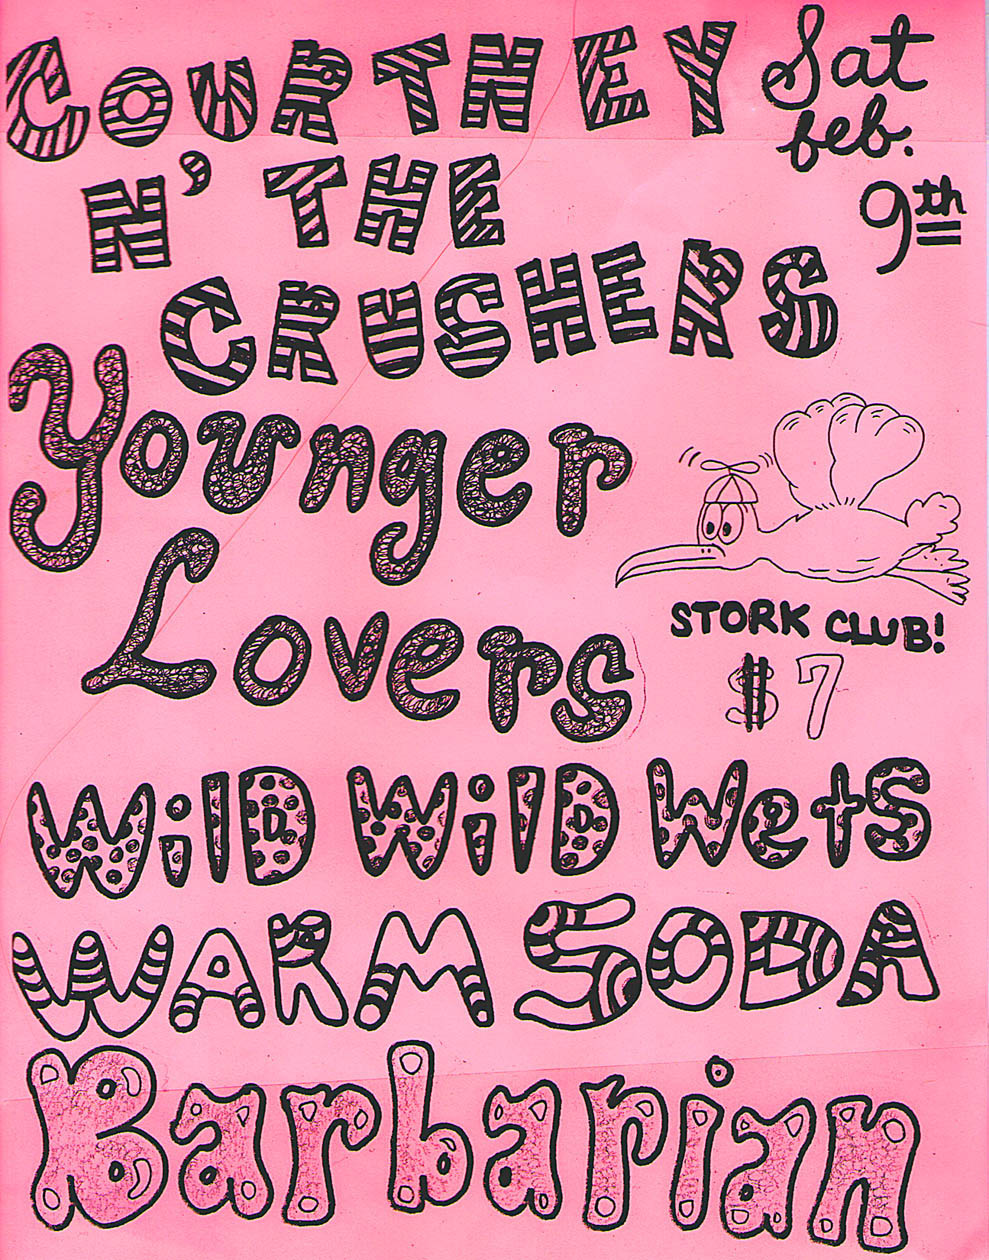 COURTNEY
N' THE
CRUSHERS
Sat
feb.
9th
Younger
Lovers
STORK CLUB!
$7
WilD WilD Wets
WARM SODA
Barbarian